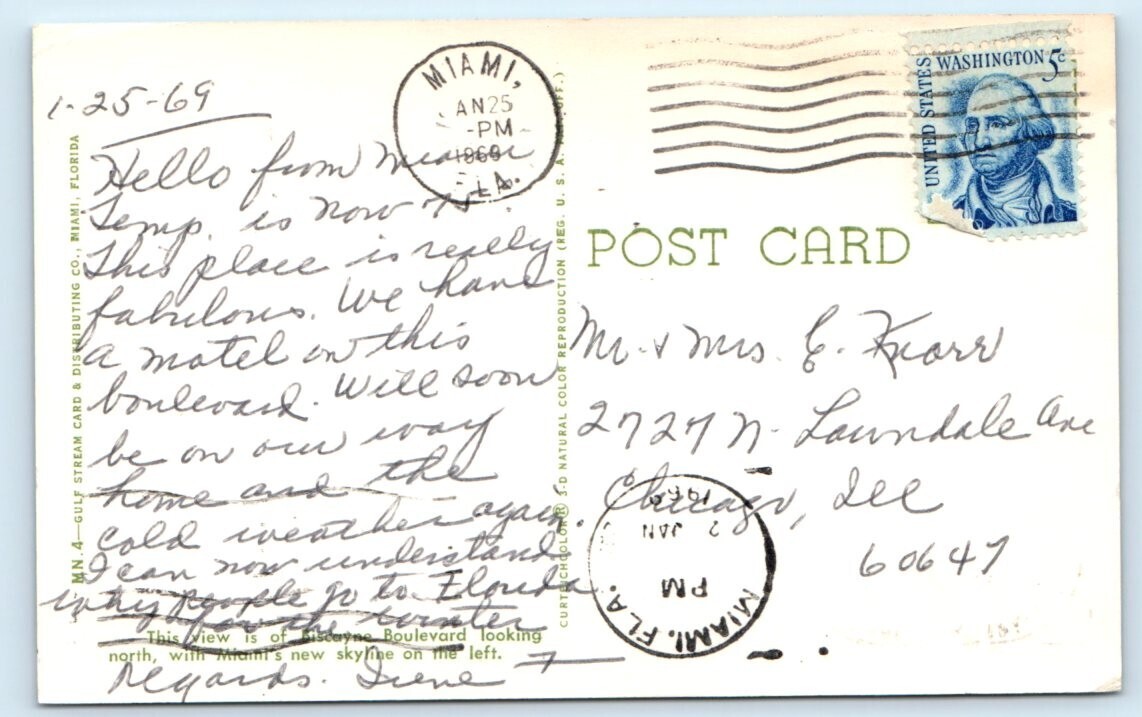 1-25-69
Hello from Miami
Temp. is now 75.
This place is really
fabulous. We have
a motel on this
boulevard. Will soon
be on our way
home and the
cold weather again.
I can now understand
why people go to Florida
for the winter
Regards. Irene
This view is of Biscayne Boulevard looking
north, with Miami's new skyline on the left.
MN.4—GULF STREAM CARD & DISTRIBUTING CO., MIAMI, FLORIDA
CURTEICHCOLOR® 3-D NATURAL COLOR REPRODUCTION (REG. U. S. A. PAT. OFF.)
MIAMI,
JAN 25
-PM
1969
FLA.
UNITED STATES
WASHINGTON 5c
POST CARD
Mr. & Mrs. E. Knorr
2727 N. Lawndale Ave
Chicago, Ill
60647
MIAMI, FLA.
PM
2 JAN
1969